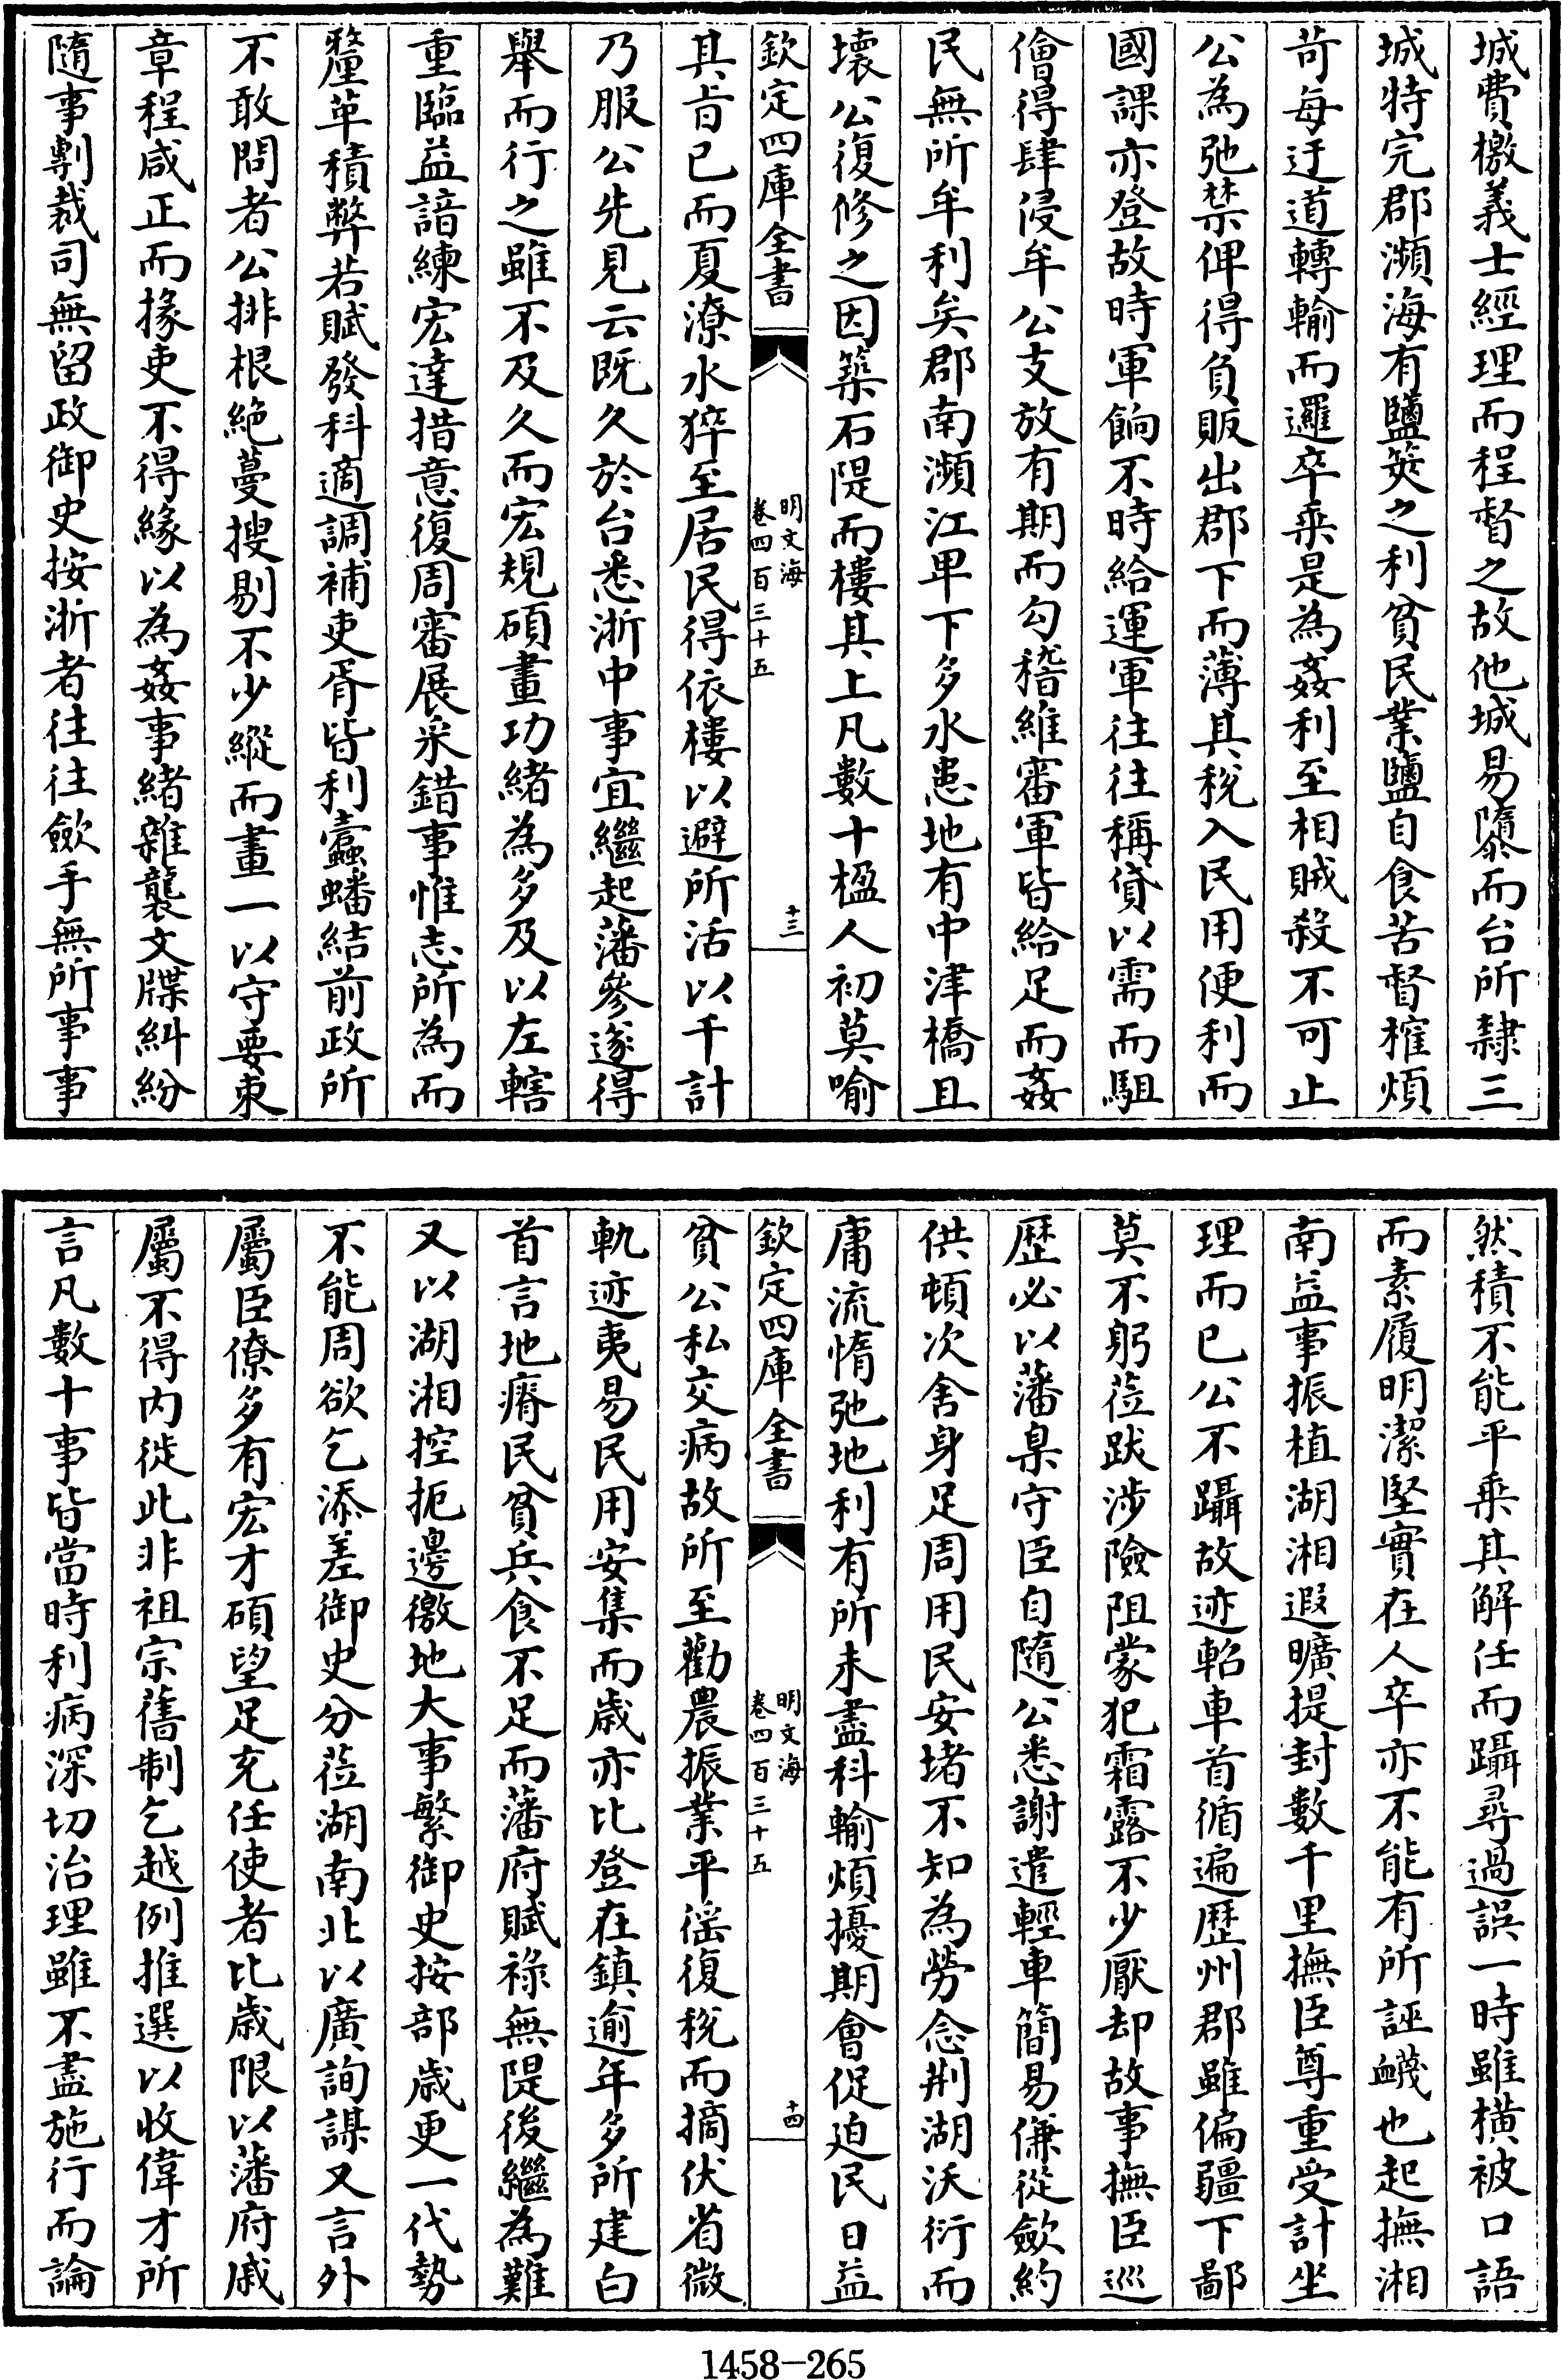 城費檄義士經理而程督之故他城易隳而台所隸三
城特完郡瀕海有鹽筴之利貧民業鹽自食苦督榷煩
苛每迂道轉輸而邏卒乘是為姦利至相賊殺不可止
公為弛禁俾得負販出郡下而薄其稅入民用便利而
國課亦登故時軍餉不時給運軍往往稱貸以需而駔
儈得肆侵牟公支放有期而勾稽維審軍皆給足而姦
民無所牟利矣郡南瀕江卑下多水患地有中津橋且
壞公復修之因築石隄而樓其上凡數十楹人初莫喻
欽定四庫全書
明文海
卷四百三十五
十三
其旨已而夏潦水猝至居民得依樓以避所活以千計
乃服公先見云既久於台悉浙中事宜繼起藩參遂得
舉而行之雖不及久而宏規碩畫功緒為多及以左轄
重臨益諳練宏達措意復周審展采錯事惟志所為而
釐革積弊若賦發科適調補吏胥皆利蠹蟠結前政所
不敢問者公排根絶蔓搜剔不少縱而畫一以守要束
章程咸正而掾吏不得緣以為姦事緒雜襲文牒糾紛
隨事剸裁司無留政御史按浙者往往歛手無所事事
然積不能平乘其解任而躡尋過誤一時雖橫被口語
而素履明潔堅實在人卒亦不能有所誣衊也起撫湘
南益事振植湖湘遐曠提封數千里撫臣尊重受計坐
理而已公不躡故迹軺車首循遍歷州郡雖偏疆下鄙
莫不躬蒞跋涉險阻蒙犯霜露不少厭却故事撫臣巡
歷必以藩臬守臣自隨公悉謝遣輕車簡易傔從歛約
供頓次舍身足周用民安堵不知為勞念荆湖沃衍而
庸流惰弛地利有所未盡科輸煩擾期會促迫民日益
欽定四庫全書
明文海
卷四百三十五
十四
貧公私交病故所至勸農振業平徭復稅而摘伏省微
軌迹夷易民用安集而歲亦比登在鎮逾年多所建白
首言地瘠民貧兵食不足而藩府賦祿無隄後繼為難
又以湖湘控扼邊徼地大事繁御史按部歲更一代勢
不能周欲乞添差御史分蒞湖南北以廣詢謀又言外
屬臣僚多有宏才碩望足充任使者比歲限以藩府戚
屬不得内徙此非祖宗舊制乞越例推選以收偉才所
言凡數十事皆當時利病深切治理雖不盡施行而論
1458-265